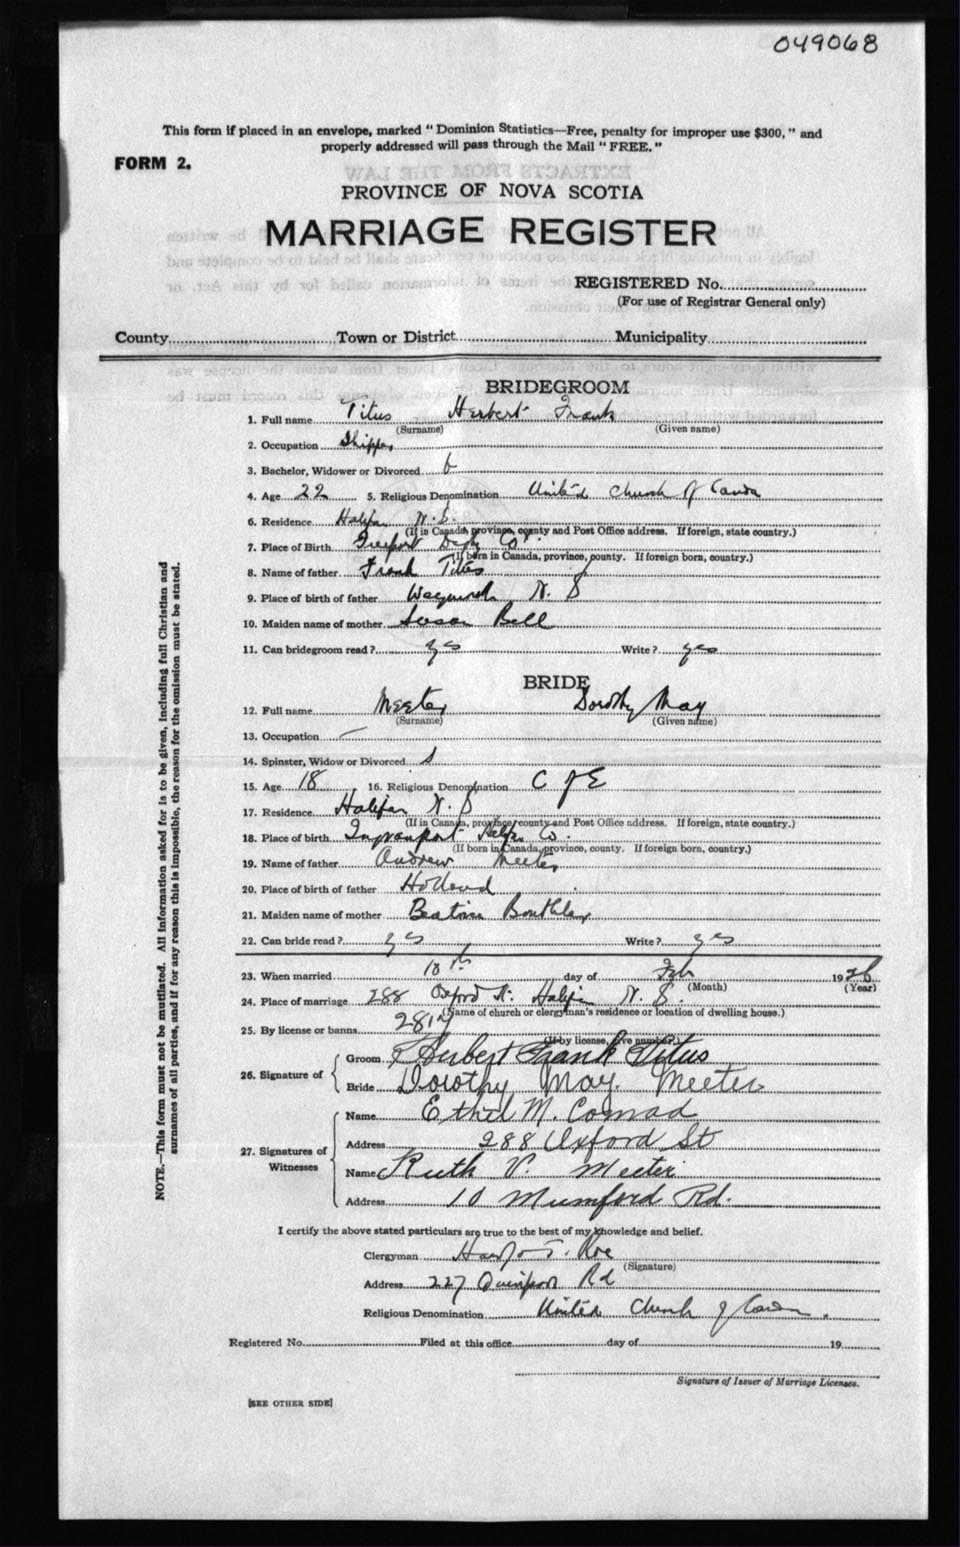 049068
This form if placed in an envelope, marked "Dominion Statistics—Free, penalty for improper use $300," and
properly addressed will pass through the Mail "FREE."
FORM 2.
EXTRACTS FROM THE LAW
PROVINCE OF NOVA SCOTIA
MARRIAGE REGISTER
REGISTERED No.
(For use of Registrar General only)
County Town or District Municipality
BRIDEGROOM
1. Full name Titus Herbert Frank
(Surname) (Given name)
2. Occupation
3. Bachelor, Widower or Divorced b
4. Age 22 5. Religious Denomination United Church of Canda
6. Residence Halifax N. S.
(If in Canada, province, county and Post Office address. If foreign, state country.)
7. Place of Birth Freeport Digby Co
(If born in Canada, province, county. If foreign born, country.)
8. Name of father Frank Titus
9. Place of birth of father N. S
10. Maiden name of mother Susan Bell
11. Can bridegroom read? yes Write? yes
BRIDE
12. Full name Meeter Dorothy May
(Surname) (Given name)
13. Occupation —
14. Spinster, Widow or Divorced s
15. Age 18 16. Religious Denomination C of E
17. Residence Halifax N. S
(If in Canada, province, county and Post Office address. If foreign, state country.)
18. Place of birth Ingramport Halfx Co.
(If born in Canada, province, county. If foreign born, country.)
19. Name of father Andrew Meeter
20. Place of birth of father Holland
21. Maiden name of mother Beatrice
22. Can bride read? yes Write? yes
23. When married 10th day of Feb 1926
(Month) (Year)
24. Place of marriage 288 Oxford St. Halifax N. S.
(Name of church or clergyman's residence or location of dwelling house.)
25. By license or banns 2817
(If by license, give number.)
26. Signature of Groom Herbert Frank Titus
Bride Dorothy May. Meeter
27. Signatures of Witnesses Name Ethel M. Conrad
Address 288 Oxford St
Name Ruth V. Meeter
Address 10 Mumford Rd.
I certify the above stated particulars are true to the best of my knowledge and belief.
Clergyman Roe
(Signature)
Address 227 Quinpool Rd
Religious Denomination United Church of Canda.
Registered No. Filed at this office day of 19
Signature of Issuer of Marriage Licenses.
[SEE OTHER SIDE]
NOTE.—This form must not be mutilated. All information asked for is to be given, including full Christian and
surnames of all parties, and if for any reason this is impossible, the reason for the omission must be stated.